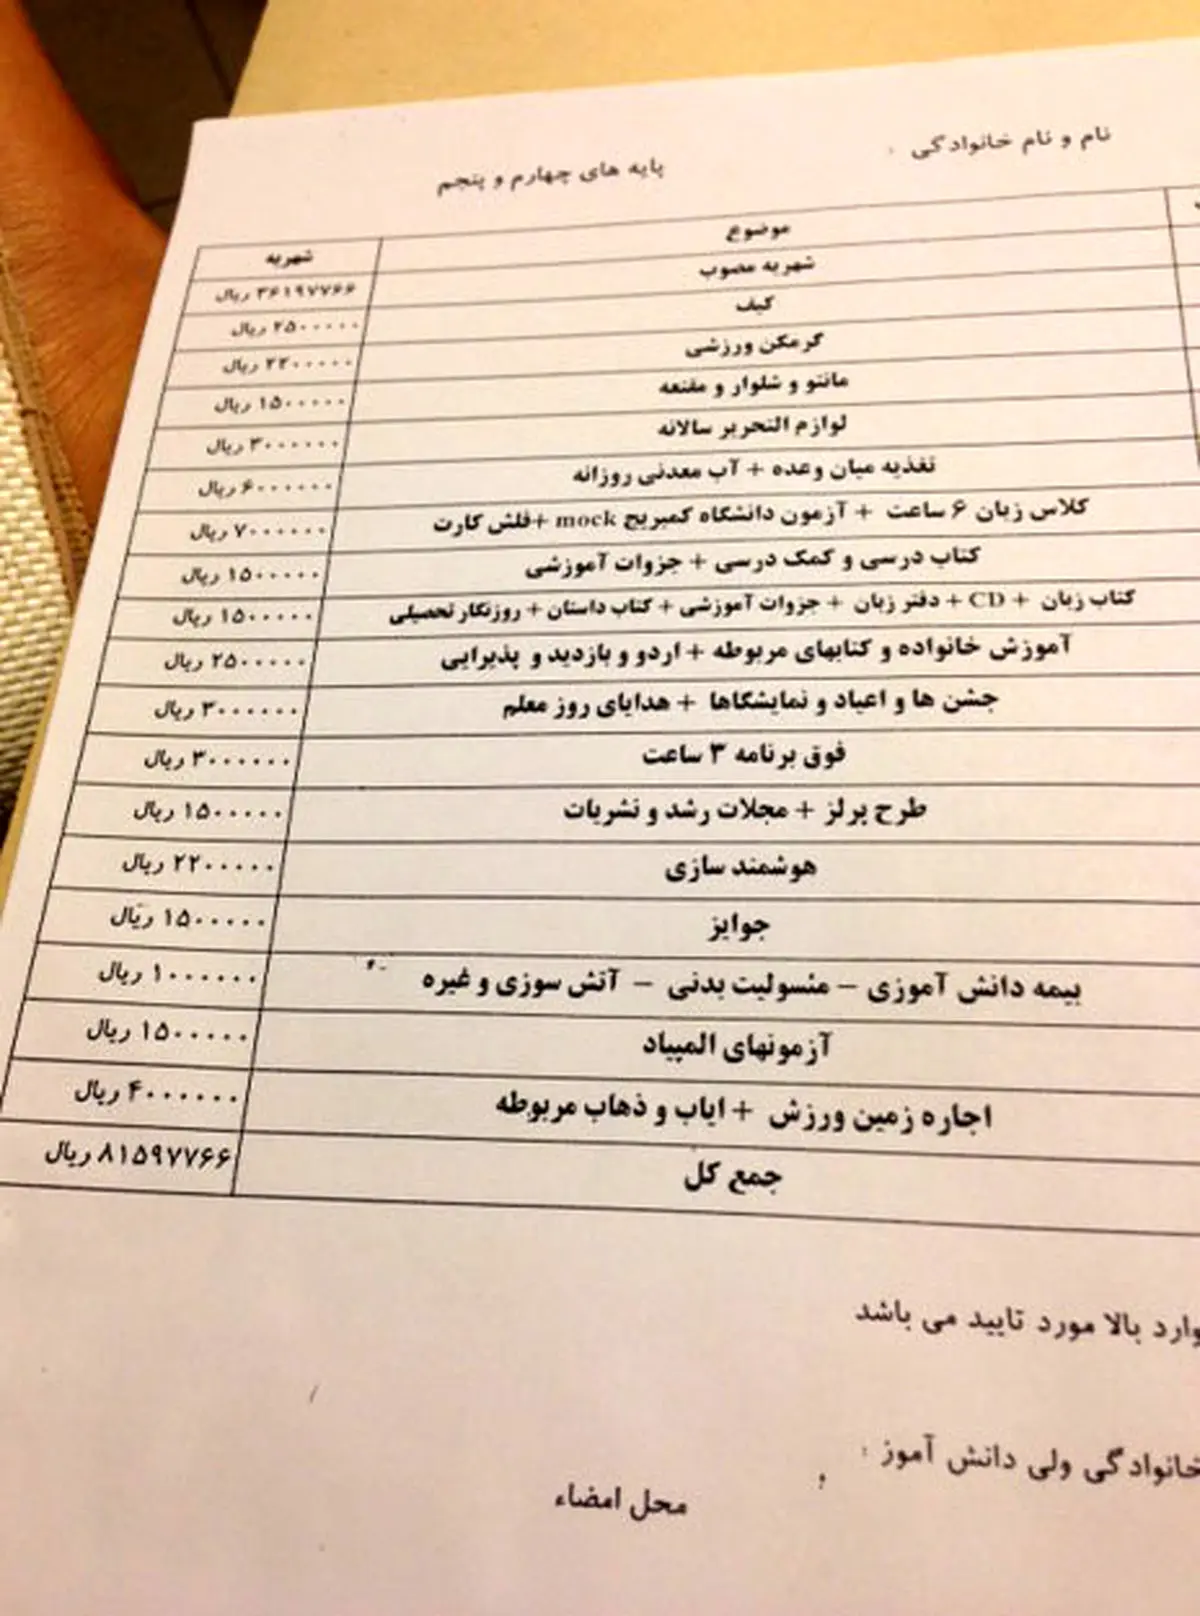 نام و نام خانوادگی :
پایه های چهارم و پنجم
موضوع شهریه
شهریه مصوب ۳۶۱۹۷۷۶۶ ریال
کیف ۲۵۰۰۰۰۰ ریال
گرمکن ورزشی ۲۲۰۰۰۰۰ ریال
مانتو و شلوار و مقنعه ۱۵۰۰۰۰۰ ریال
لوازم التحریر سالانه ۳۰۰۰۰۰۰ ریال
تغذیه میان وعده + آب معدنی روزانه ۶۰۰۰۰۰۰ ریال
کلاس زبان ۶ ساعت + آزمون دانشگاه کمبریج mock +فلش کارت ۷۰۰۰۰۰۰ ریال
کتاب درسی و کمک درسی + جزوات آموزشی ۱۵۰۰۰۰۰ ریال
کتاب زبان + CD + دفتر زبان + جزوات آموزشی + کتاب داستان + روزنگار تحصیلی ۱۵۰۰۰۰۰ ریال
آموزش خانواده و کتابهای مربوطه + اردو و بازدید و پذیرایی ۲۵۰۰۰۰۰ ریال
جشن ها و اعیاد و نمایشگاها + هدایای روز معلم ۳۰۰۰۰۰۰ ریال
فوق برنامه ۳ ساعت ۳۰۰۰۰۰۰ ریال
طرح پرلز + مجلات رشد و نشریات ۱۵۰۰۰۰۰ ریال
هوشمند سازی ۲۲۰۰۰۰۰ ریال
جوایز ۱۵۰۰۰۰۰ ریال
بیمه دانش آموزی – مئسولیت بدنی – آتش سوزی و غیره ۱۰۰۰۰۰۰ ریال
آزمونهای المپیاد ۱۵۰۰۰۰۰ ریال
اجاره زمین ورزش + ایاب و ذهاب مربوطه ۴۰۰۰۰۰۰ ریال
جمع کل ۸۱۵۹۷۷۶۶ ریال
وارد بالا مورد تایید می باشد
خانوادگی ولی دانش آموز :
محل امضاء